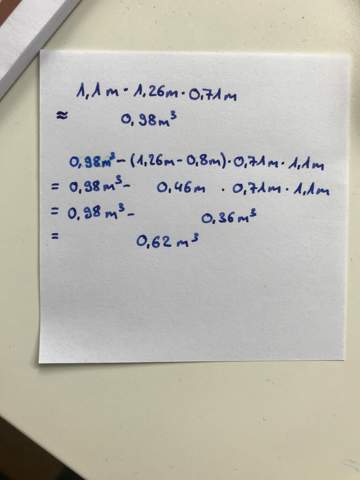 1,1m · 1,26m · 0,71m
≈ 0,98m³
0,98m³ - (1,26m - 0,8m) · 0,71m · 1,1m
= 0,98m³ - 0,46m · 0,71m · 1,1m
= 0,98m³ - 0,36m³
= 0,62m³